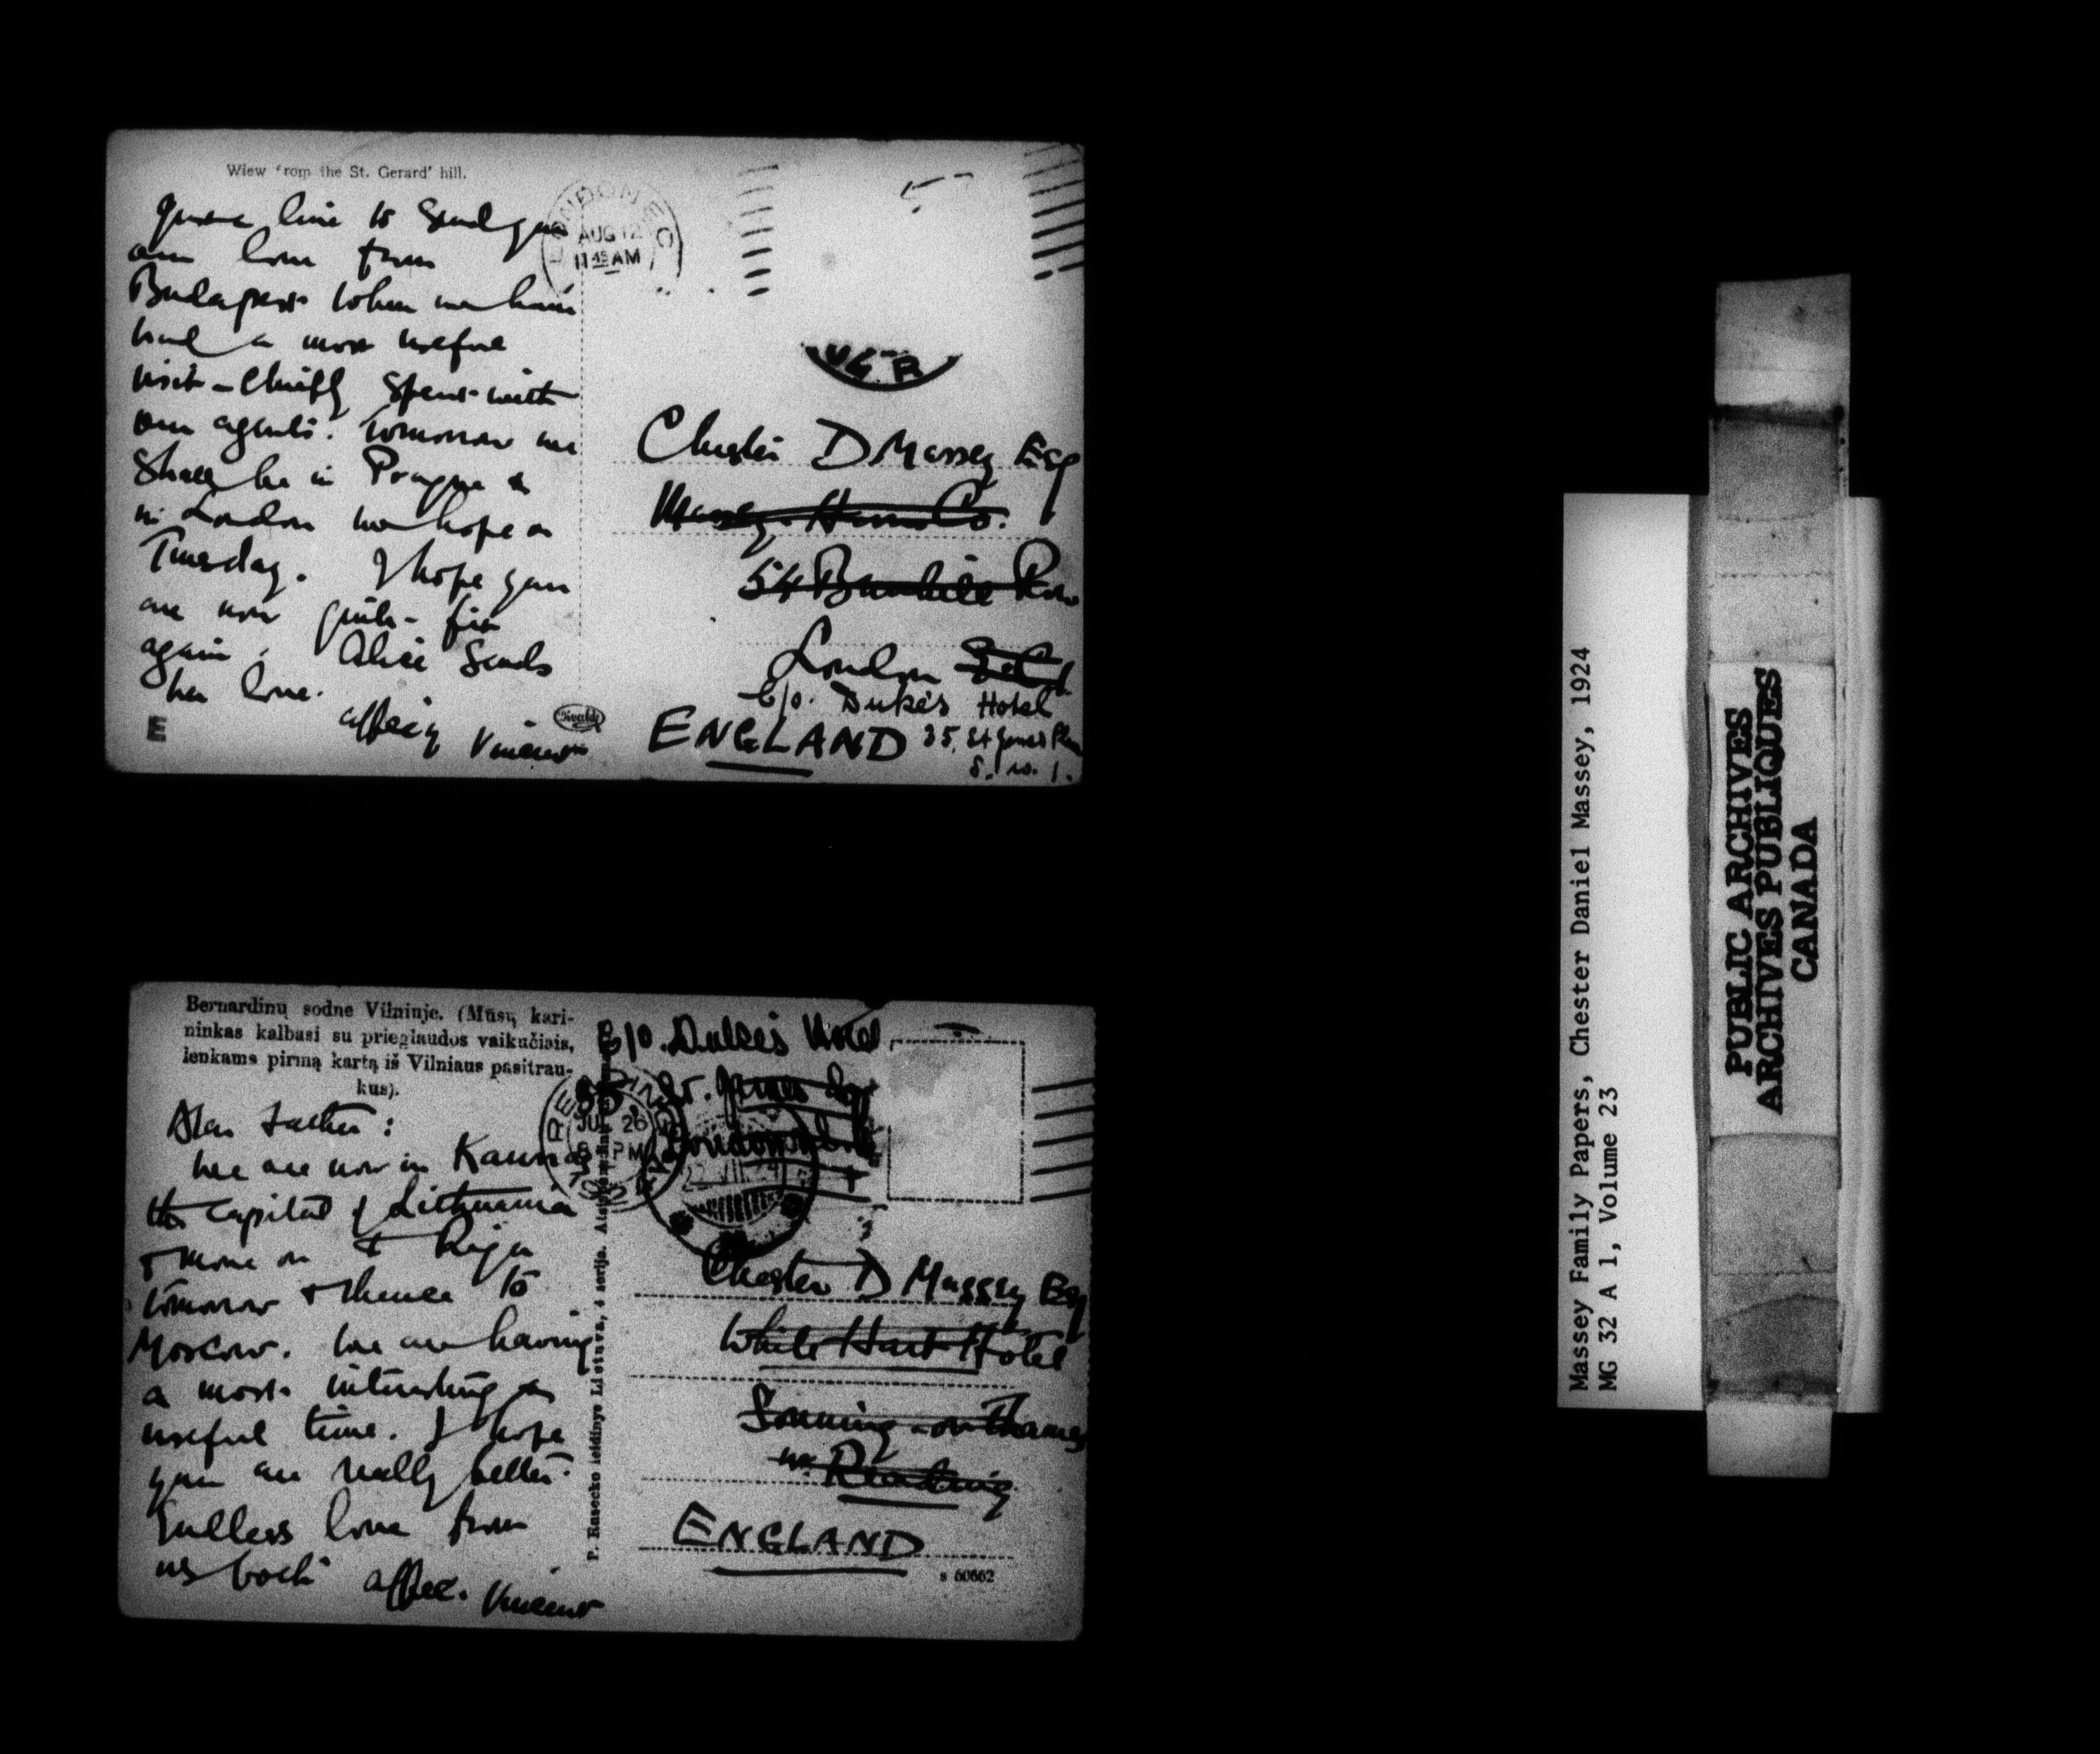 Wiew 'rom the St. Gerard' hill.
line to send you
our love from
Budapest where we have
had a most useful
visit – chiefly spent with
our agents. Tomorrow we
shall be in Prague &
in London we hope on
Tuesday. I hope you
are now quite fit
again. Alice sends
her love.
affecly Vincent
E
LONDON E.C
AUG 12
11 45 AM
Chester D Massey Esq
Massey-Harris Co.
54 Bunhill Row
London
c/o. Duke's Hotel
ENGLAND 35, St James Place
S. W. 1.
Bernardinų sodne Vilniuje. (Mūsų kari-
ninkas kalbasi su prieglaudos vaikučiais,
lenkams pirmą kartą iš Vilniaus pasitrau-
kus).
Dear Father:
We are now in Kaunas
the capital of Lithuania
& move on to Riga
tomorrow & thence to
Moscow. We are having
a most interesting &
useful time. I hope
you are really better.
Endless love from
us both affec. Vincent
P. Rusecko leidinys Lietuva, 4 serija.
c/o. Duke's Hotel
35, St. James
London
READING
JUL 26
PM
Chester D Massey Esq
White Hart Hotel
Sonning-on-Thames
nr Reading
ENGLAND
s 60662
Massey Family Papers, Chester Daniel Massey, 1924
MG 32 A 1, Volume 23
PUBLIC ARCHIVES
ARCHIVES PUBLIQUES
CANADA